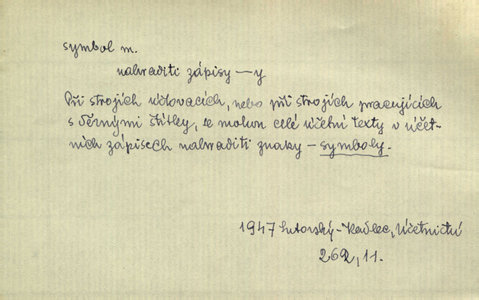 symbol m.
nahraditi zápisy —y
Při strojích účtovacích, nebo při strojích pracujících
s děrnými štítky, se mohou celé účetní texty v účet-
ních zápisech nahraditi znaky – symboly.
1947 -Kadlec, Účetnictví
262, 11.